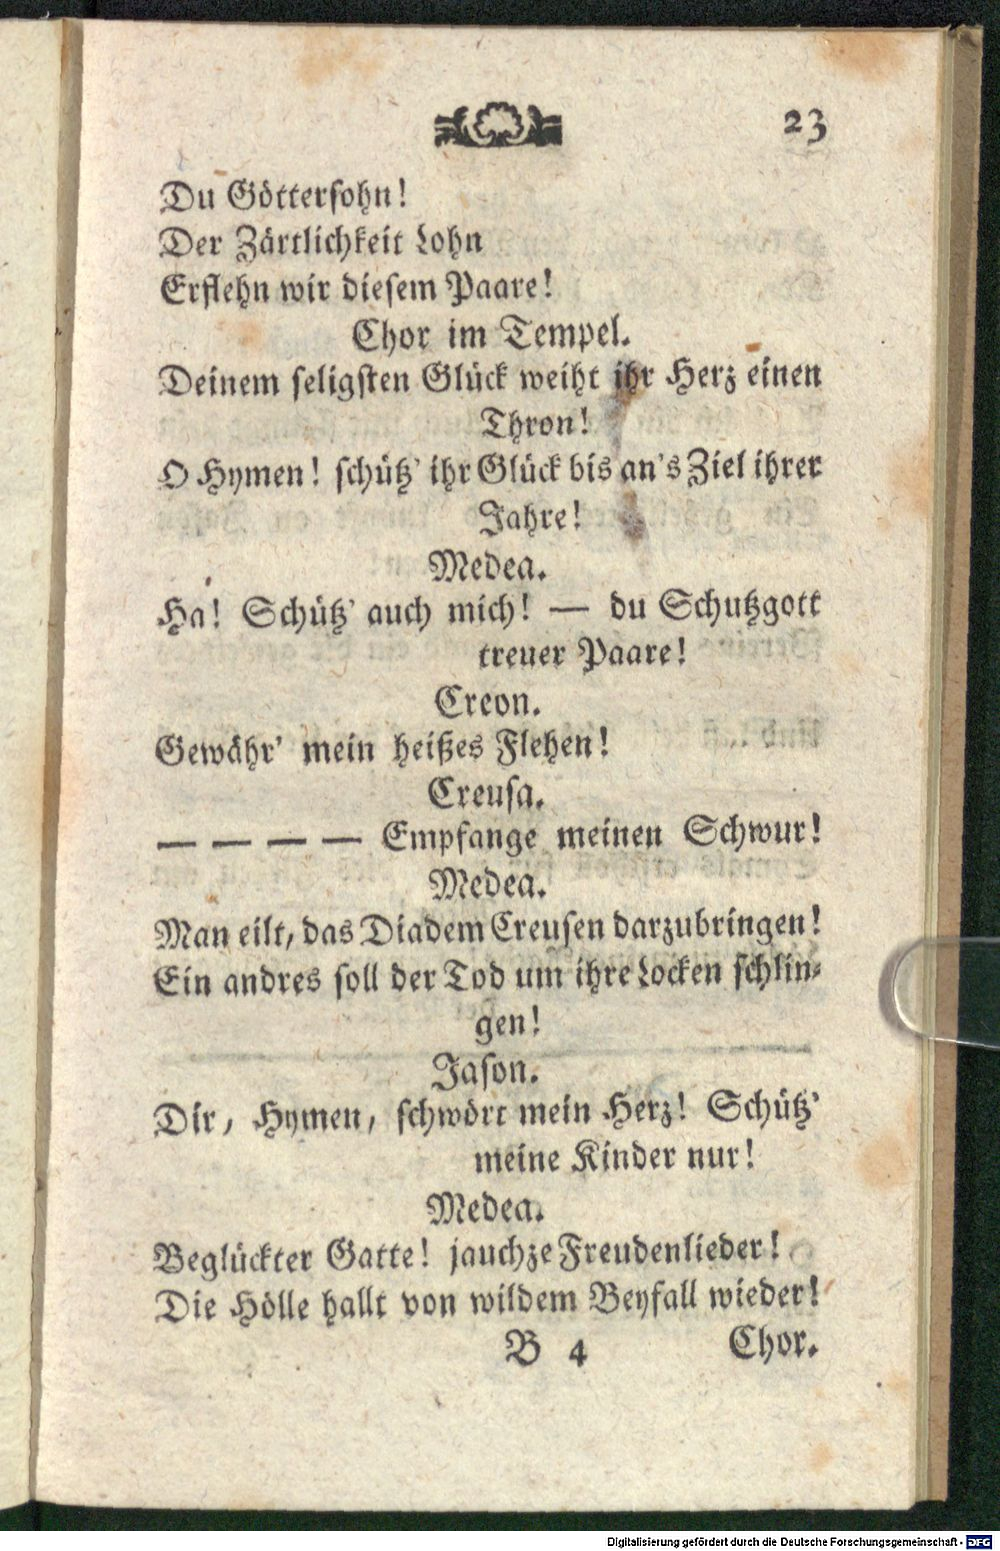 23
Du Göttersohn!
Der Zärtlichkeit Lohn
Erflehn wir diesem Paare!
Chor im Tempel.
Deinem seligsten Glück weiht ihr Herz einen
Thron!
O Hymen! schütz' ihr Glück bis an's Ziel ihrer
Jahre!
Medea.
Ha! Schütz' auch mich! — du Schutzgott
treuer Paare!
Creon.
Gewähr' mein heißes Flehen!
Creusa.
— — — — Empfange meinen Schwur!
Medea.
Man eilt, das Diadem Creusen darzubringen!
Ein andres soll der Tod um ihre Locken schlin-
gen!
Jason.
Dir, Hymen, schwört mein Herz! Schütz'
meine Kinder nur!
Medea.
Beglückter Gatte! jauchze Freudenlieder!
Die Hölle hallt von wildem Beyfall wieder!
B 4 Chor.
Digitalisierung gefördert durch die Deutsche Forschungsgemeinschaft - DFG